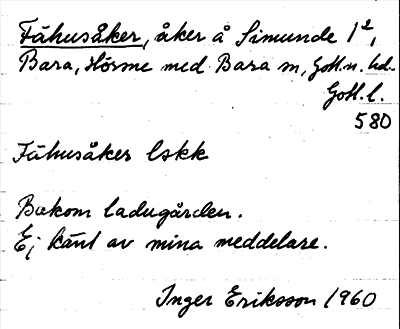 Fähusåker, åker å Simunde 1²,
Bara, Hörsne med Bara sn, Gotl. n. hd.
Gotl. l.
580
Fähusåker lskk
Bakom ladugården.
Ej känt av mina meddelare.
Inger Eriksson 1960